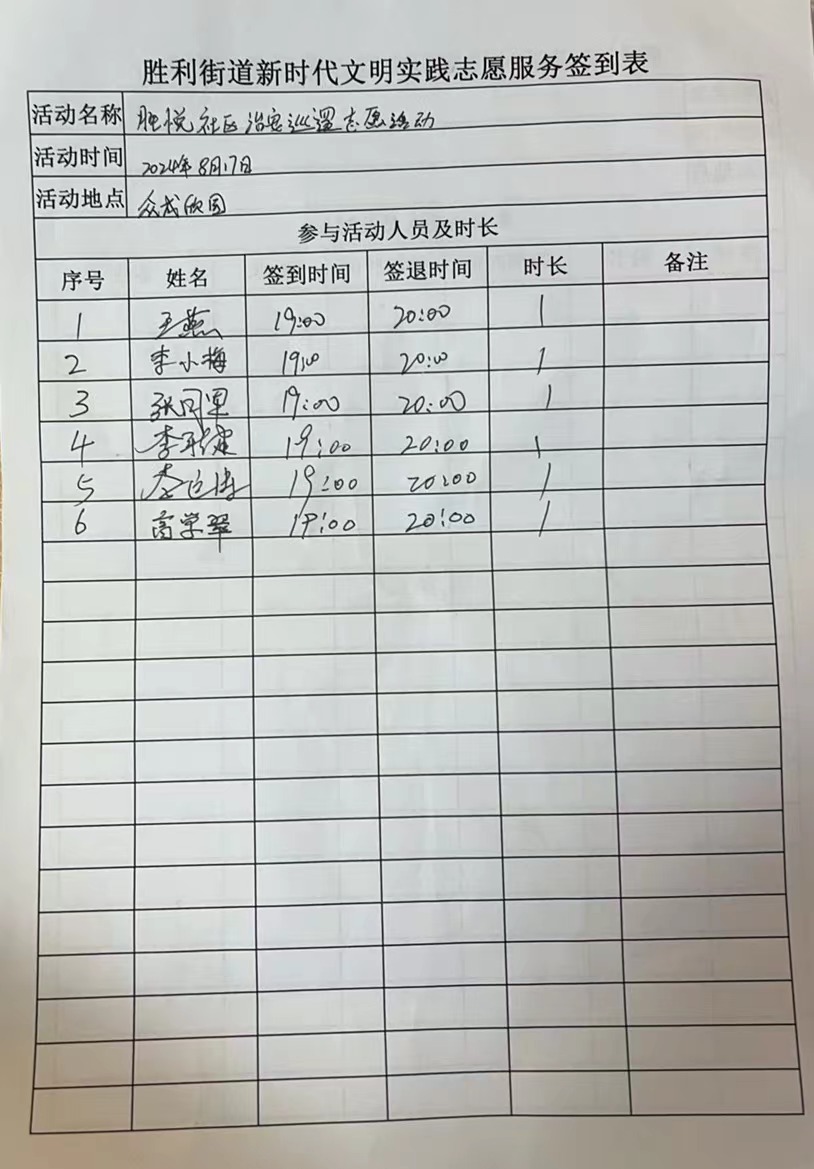 胜利街道新时代文明实践志愿服务签到表
活动名称 胜悦社区治安巡逻志愿活动
活动时间 2024年8月17日
活动地点 众成欣园
参与活动人员及时长
序号 姓名 签到时间 签退时间 时长 备注
1 王燕 19:00 20:00 1
2 李小梅 19:00 20:00 1
3 19:00 20:00 1
4 19:00 20:00 1
5 19:00 20:00 1
6 高学翠 19:00 20:00 1